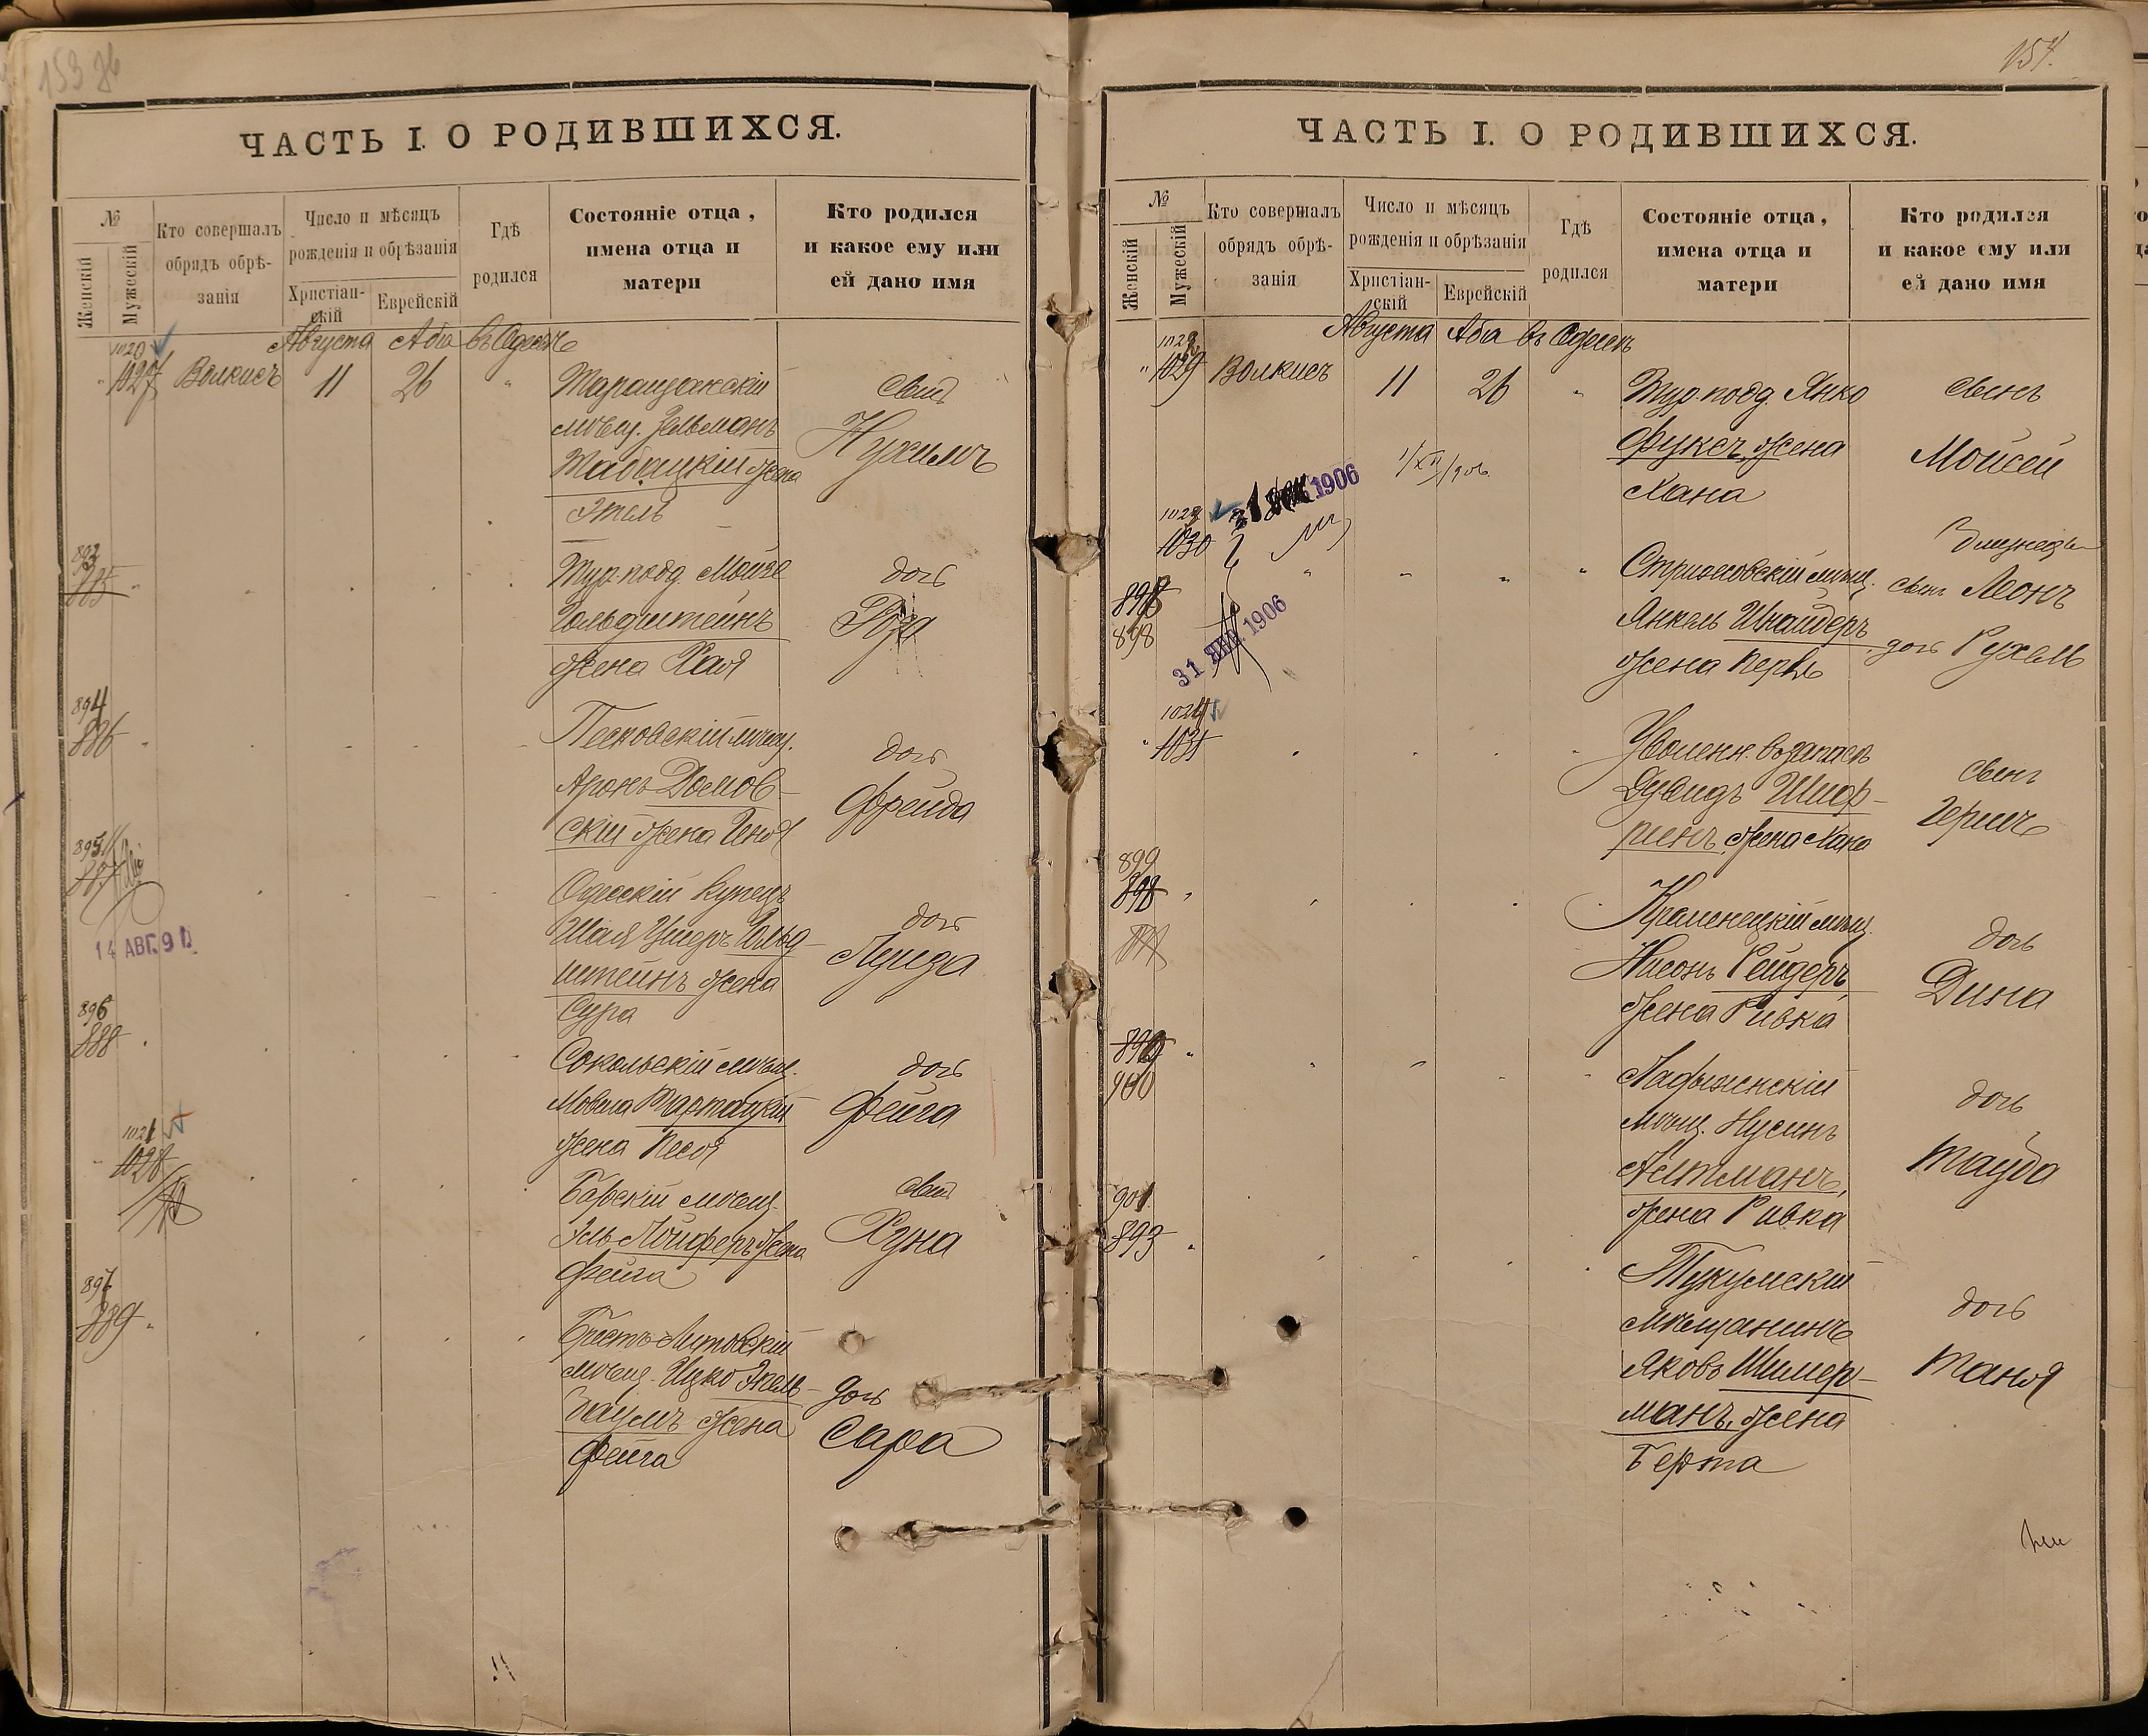 153
ЧАСТЬ I. О РОДИВШИХСЯ.
№
Женскій
Мужескій
Кто совершалъ
обрядъ обрѣ-
занія
Число и мѣсяцъ
рожденія и обрѣзанія
Христіан-
скій
Еврейскій
Гдѣ
родился
Состояніе отца,
имена отца и
матери
Кто родился
и какое ему или
ей дано имя
Августа Аба въ Одессѣ
1020
1027 Волкисъ 11 26 " Таращанскій
мѣщ. Зельманъ
Табацкій жена
Этель
сынъ
Нухимъ
893
885
Тур. подд. Мойше
Гольдштейнъ
жена Хая
дочь
Роза
894
886
Песковскій мѣщ.
Аронъ Домов-
скій жена Геня
дочь
Фрейда
895
887
14 АВГ. 91
Одесскій купецъ
Шая Ушеръ Гольд-
штейнъ жена
Сура
дочь
Луиза
896
888
Сокольскій мѣщ.
Мовша Тартацкій
жена Песя
дочь
Фейга
1021
1028
Барскій мѣщ.
Эль Лойферъ жена
Фейга
сынъ
Хуна
897
889
Брестъ-Литовскій
мѣщ. Ицко Экель-
баумъ жена
Фейга
дочь
Сара
154.
ЧАСТЬ I. О РОДИВШИХСЯ.
№
Женскій
Мужескій
Кто совершалъ
обрядъ обрѣ-
занія
Число и мѣсяцъ
рожденія и обрѣзанія
Христіан-
скій
Еврейскій
Гдѣ
родился
Состояніе отца,
имена отца и
матери
Кто родился
и какое ему или
ей дано имя
Августа Аба въ Одессѣ
1022
1029 Волкисъ 11 26 " Тур. подд. Янко
Фуксъ, жена
Хана
сынъ
Мойсей
1/XII/906.
1906
1023
1030
898
31 ЯНВ. 1906
Стрижовскій мѣщ.
Янкель Шнайдеръ
жена Перль
Близнецы
сынъ Леонъ
дочь Рухель
1024
1031
Уволенн. въ запасъ
Дувидъ Шиф-
ринъ, жена Хана
сынъ
Гершъ
899
898
Кременецкій мѣщ.
Нисонъ Рейдеръ,
жена Ривка
дочь
Дина
899
900
Ладыженскій
мѣщ. Нусинъ
Альтманъ,
жена Ривка
дочь
Тауба
901
893
Тукумскій
мѣщанинъ
Яковъ Шимер-
манъ, жена
Берта
дочь
Таня